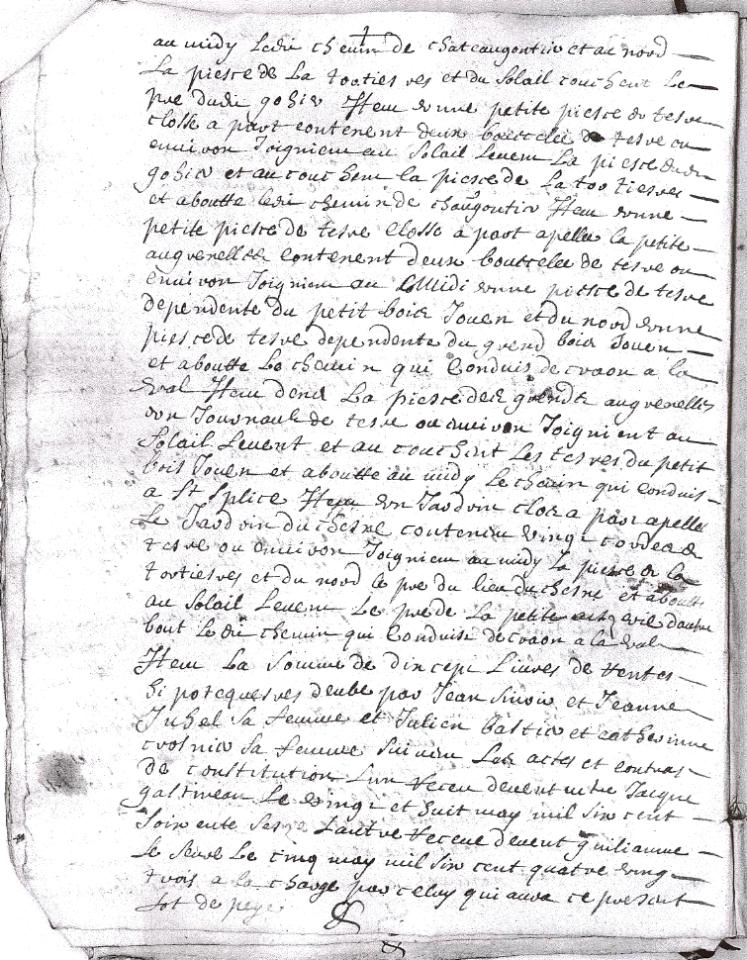 au midy ledit chemin de chateaugontier et au nord
La piesce de La tootieres et du Solail couchent Le
pre dudit gohier Item unne petite piesce de terre
closse a part contenent deux boittelee de terre ou
enuiron Joignient au Solail Levent La piesce dudit
gohier et au couchent la piesce de La tootieres
et aboutte ledit chemin de chaugontier Item unne
petite piesce de terre closse a part apellee la petite
augrenellee contenent deux boittelee de terre ou
enuiron Joignient au Midi unne piesce de terre
dependente du petit bois Jouen et du nord unne
piesce de terre dependente du grend bois Jouen
et aboutte La chemin qui conduis de craon a la
Item dens La piesce des grendes augrenelles
un Journault de terre ou enuiron Joignient au
Solail Levent et au couchent Les terres du petit
bois Jouen et aboutte au midy Le chemin qui conduis
a St Splice Item un Jardin clos a part apelle
Le Jardin du chesne contenent vingt cordes de
terre ou enuiron Joignient au midy La piesce de la
tootieres et du nord le pre du lieu du chesne et aboutte
au Solail Levent Le pre de La petite d'autre
bout Ledit chemin qui conduis de craon a la
Item La Somme de dix cept Liures de rentes
hipotequeres deube par Jean et Jeanne
Juhel Sa femme et Julien bastie et catherinne
crosnier Sa femme Suivent Les actes et contras
De constitution L'un receu devent mtre Jacque
gastineau Le vingt et huit may mil six cent
Soixente Seize L'autre receue devent guiliaume
Le Seure Le cinq may mil six cent quatre vingt
trois a la charge par celuy qui aura ce present
Lot de peyer